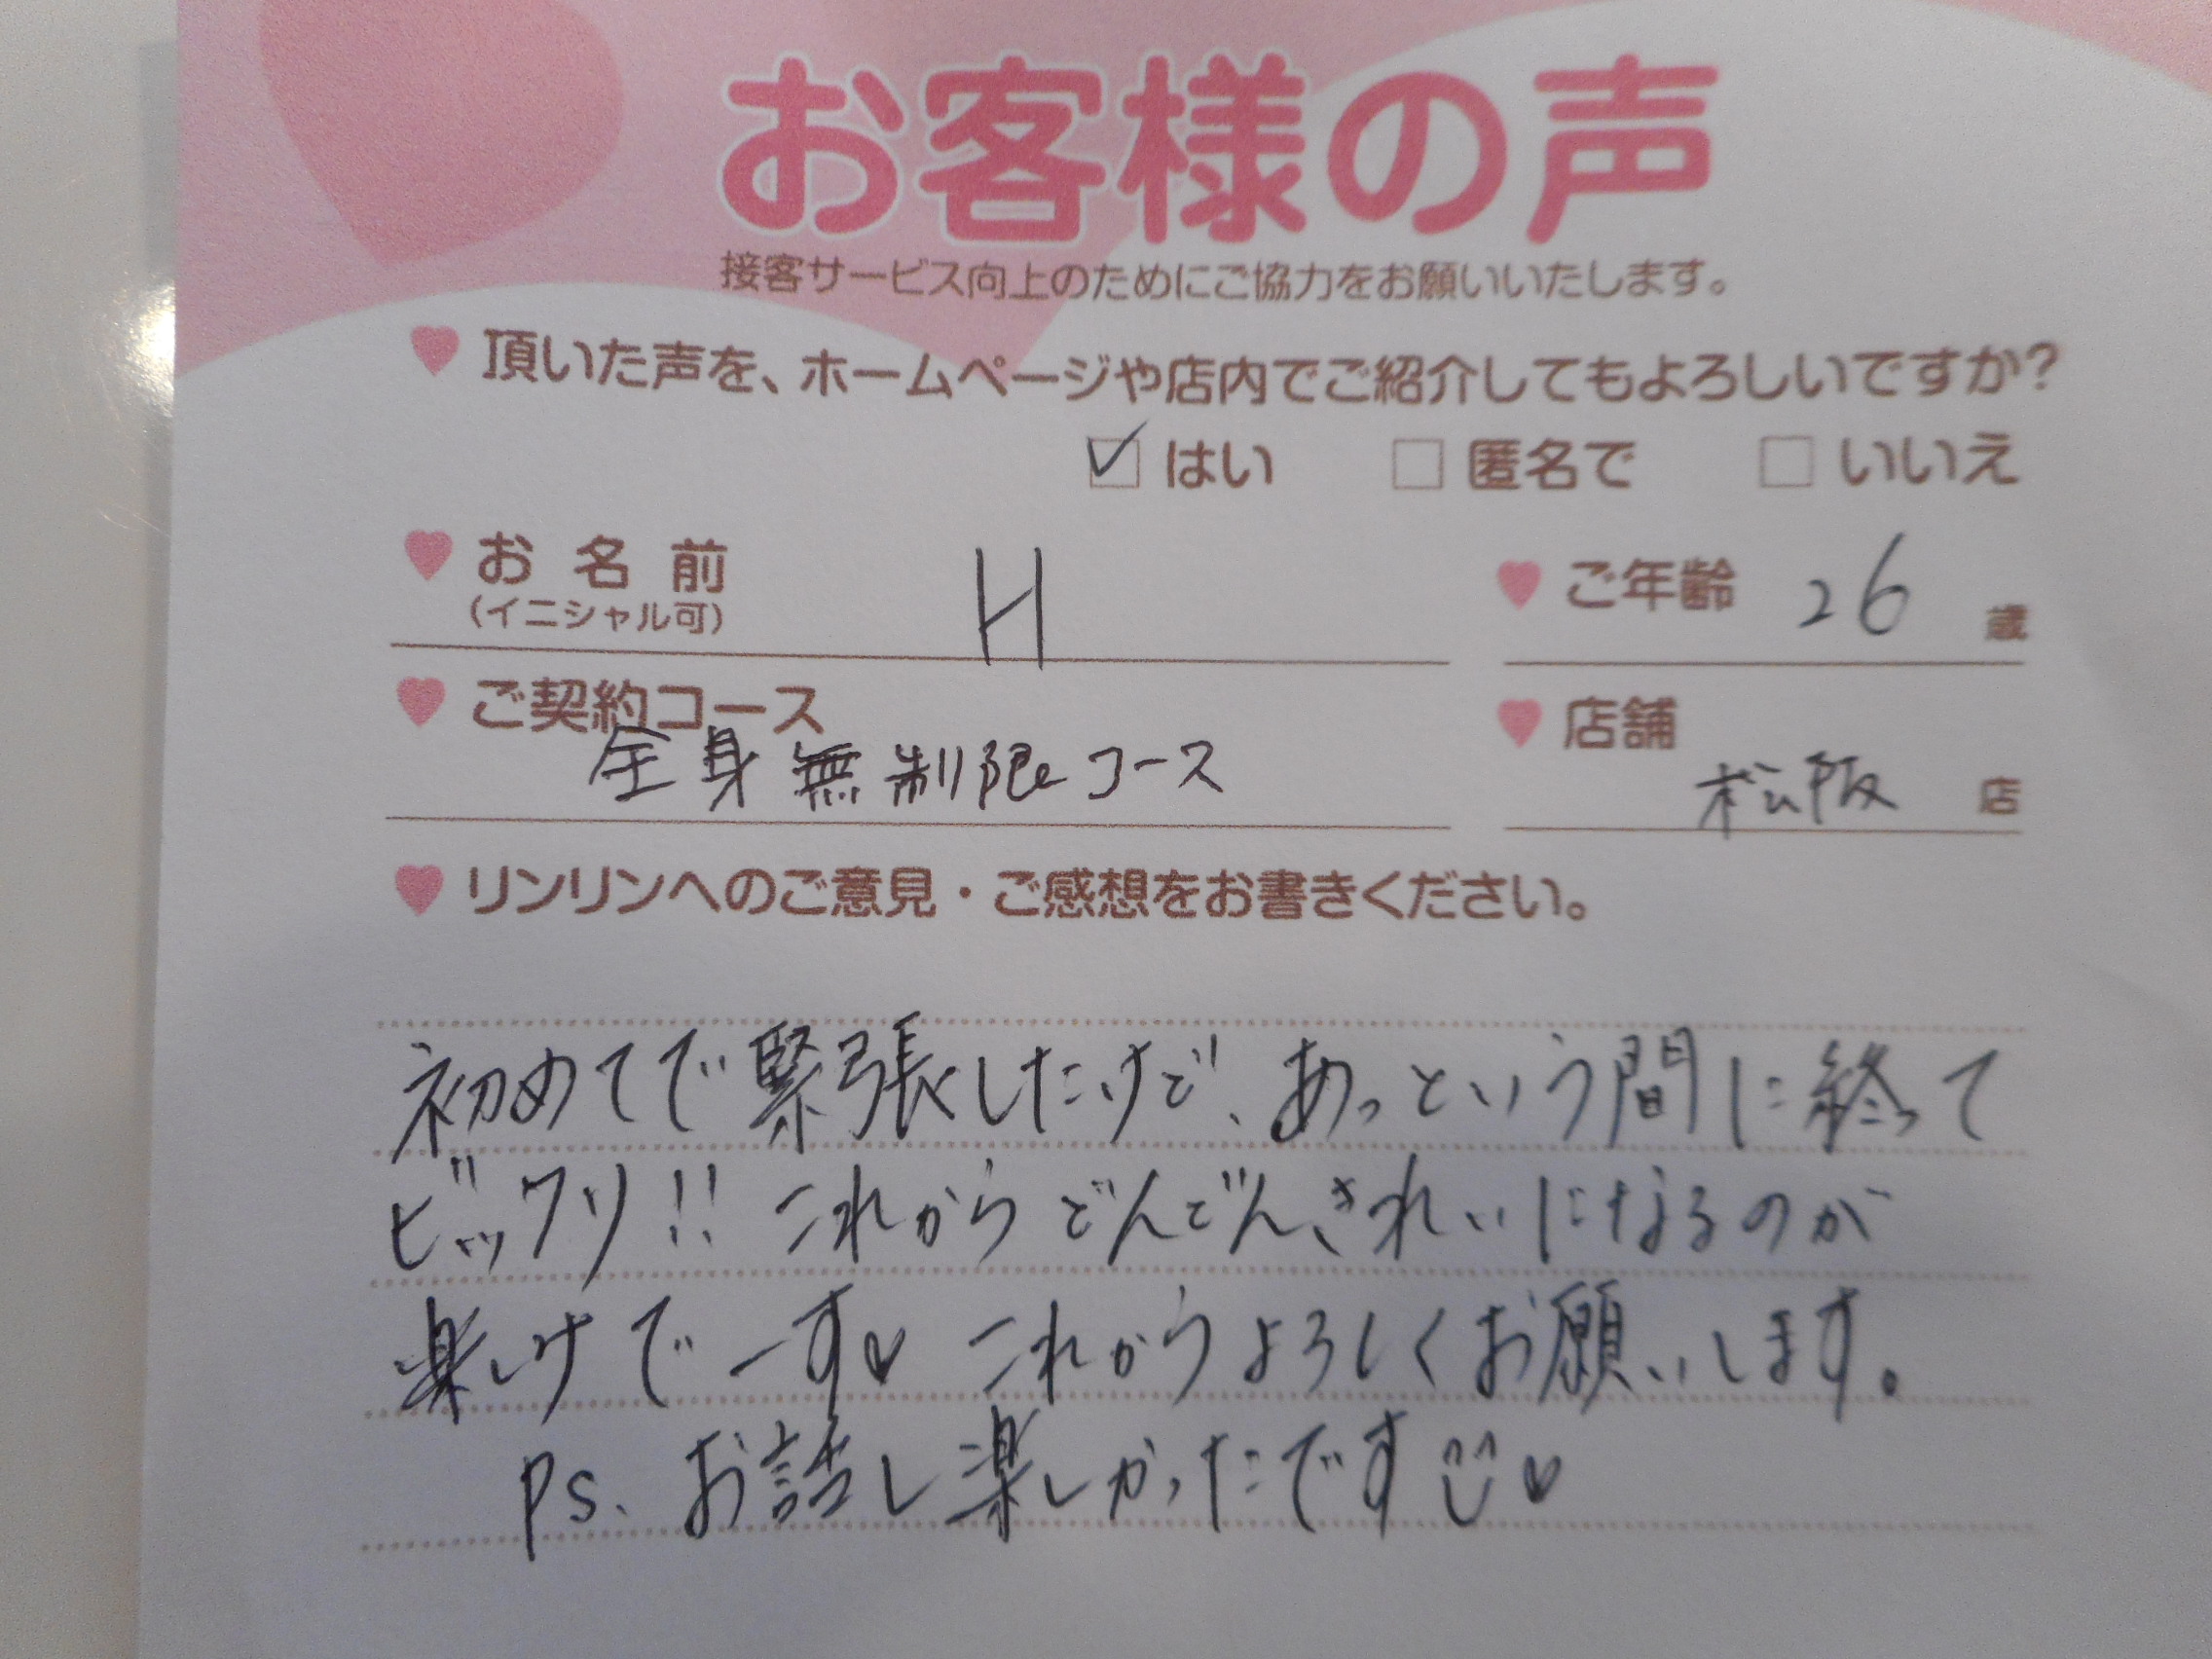 お客様の声
接客サービス向上のためにご協力をお願いいたします。
頂いた声を、ホームページや店内でご紹介してもよろしいですか?
はい 匿名で いいえ
お名前 H ご年齢 26 歳
(イニシャル可)
ご契約コース 店舗
全身無制限コース 松阪 店
リンリンへのご意見・ご感想をお書きください。
初めてで緊張したけど、あっという間に終って
ビックリ!! これからどんどんきれいになるのが
楽しみでーす♥ これからよろしくお願いします。
Ps、お話し楽しかったです ♥